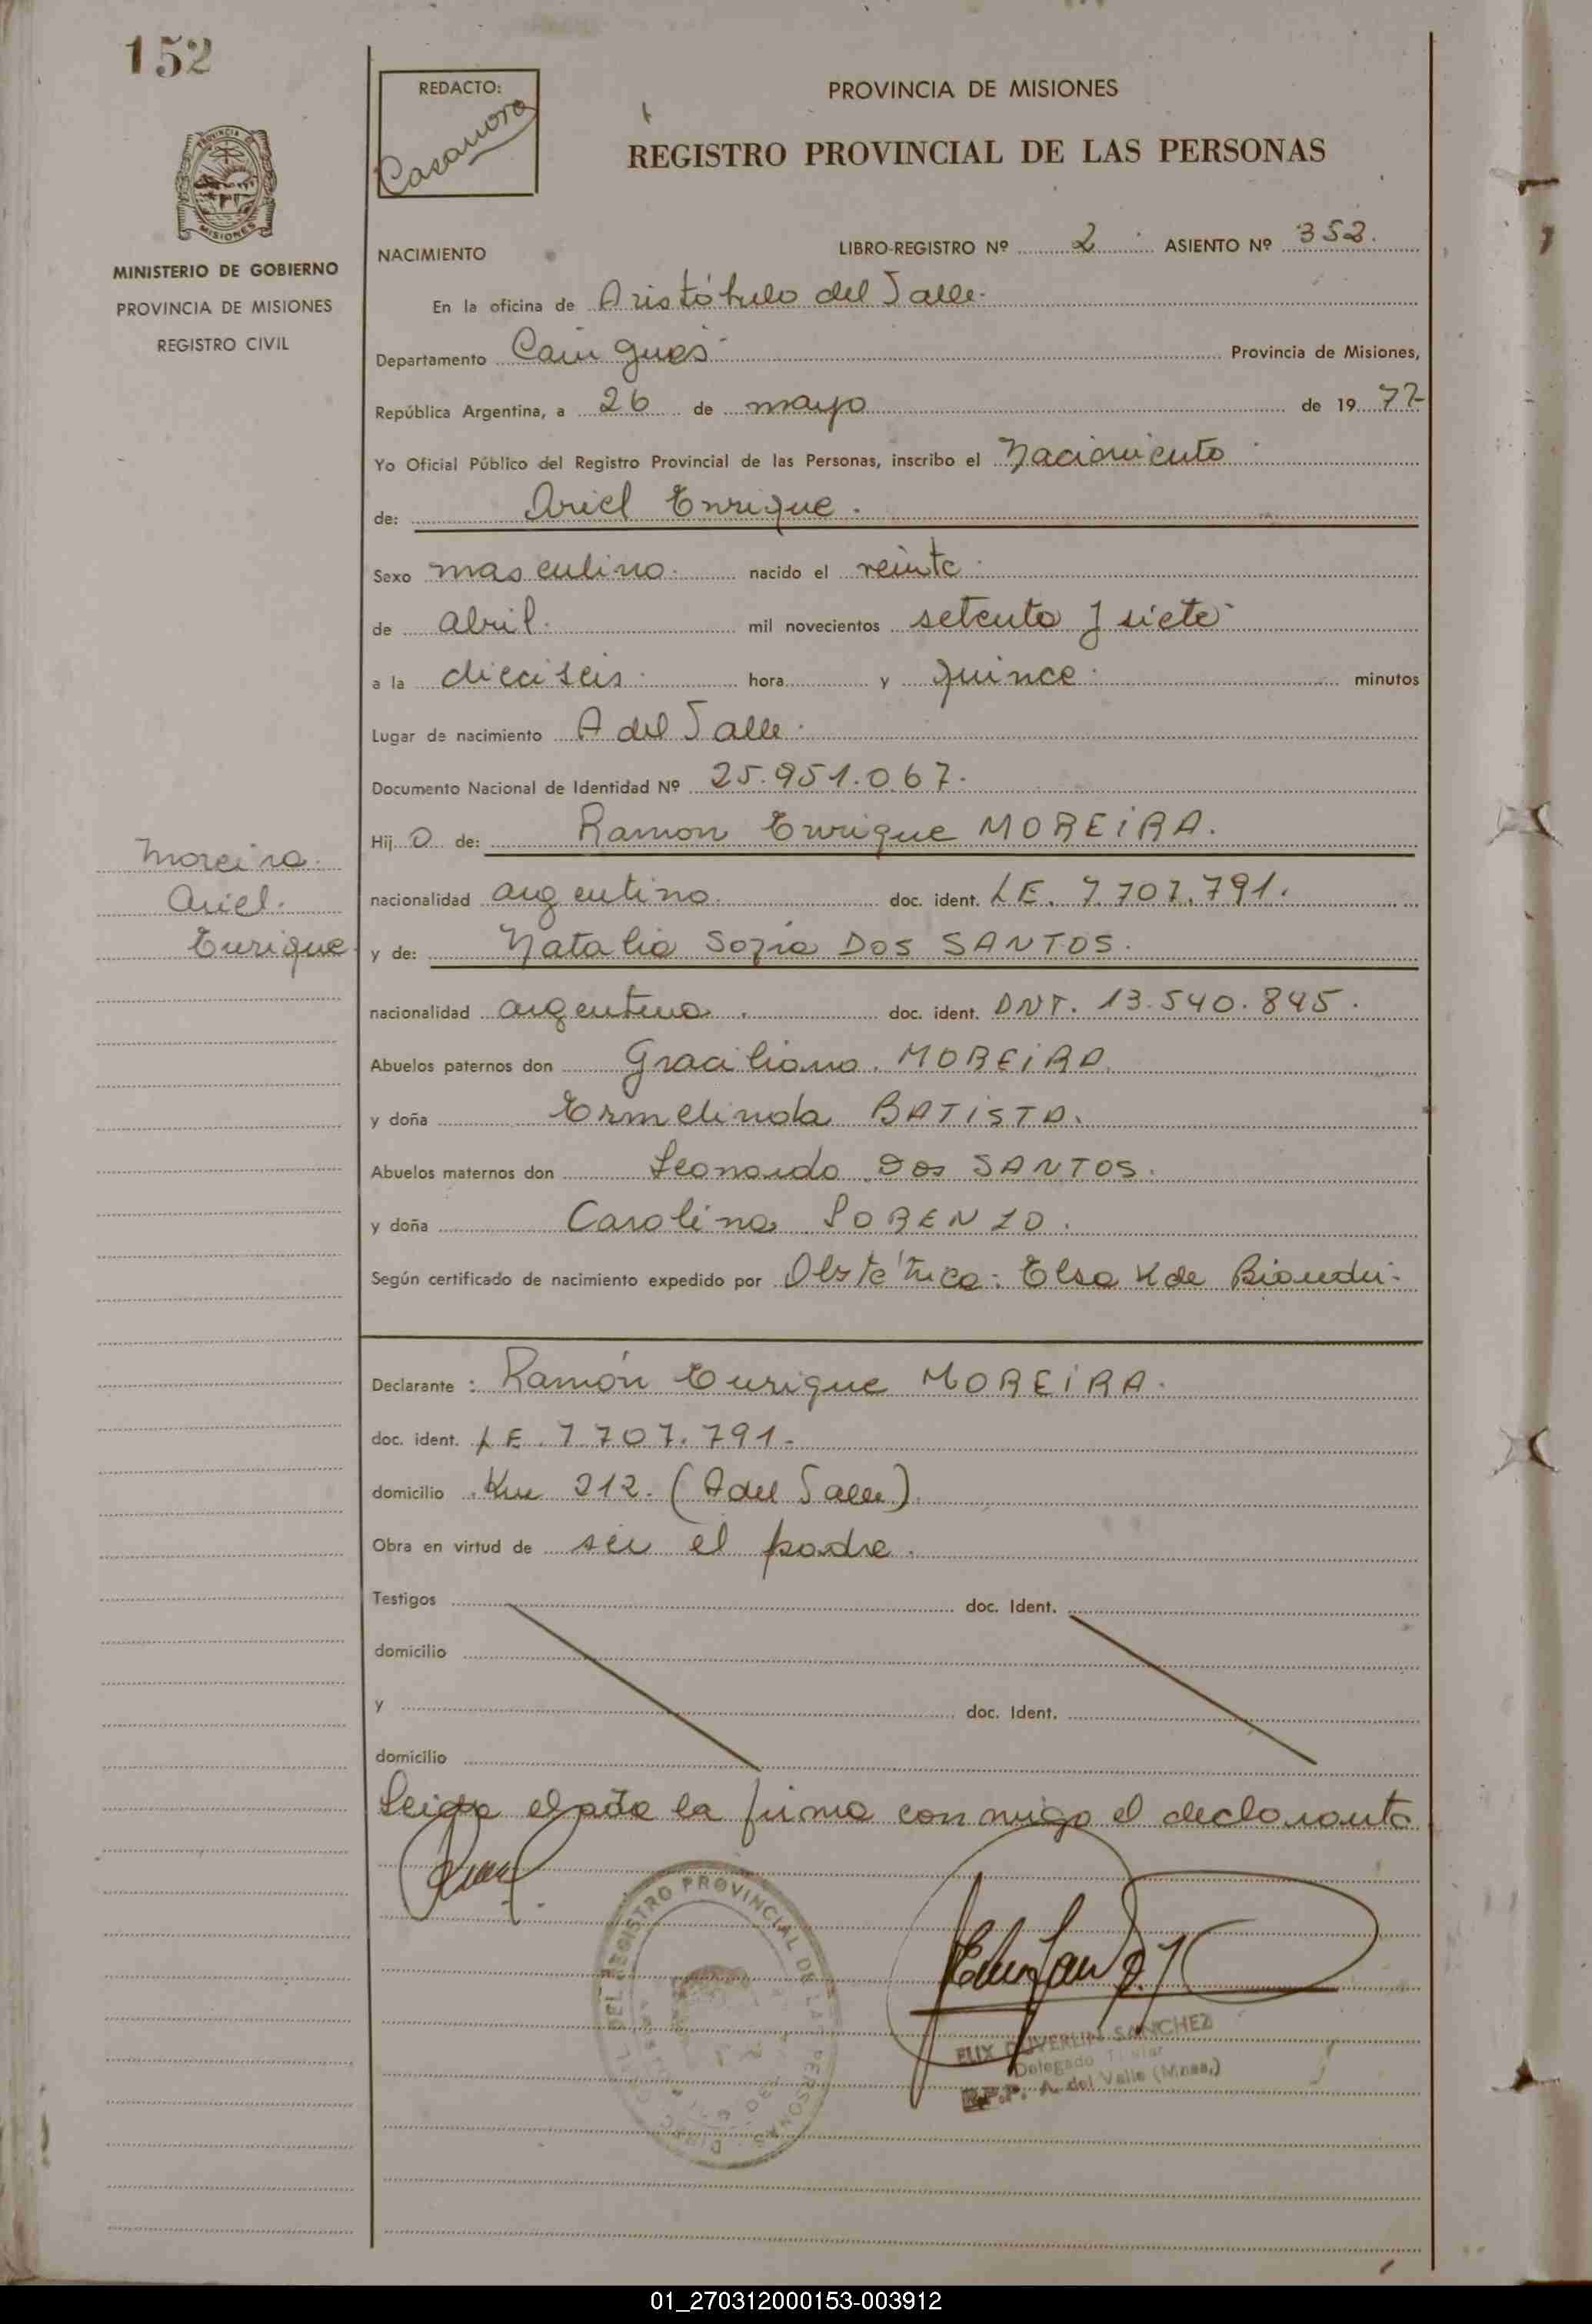 152
REDACTO:
Casanova
PROVINCIA DE MISIONES
REGISTRO PROVINCIAL DE LAS PERSONAS
MISIONES
MINISTERIO DE GOBIERNO
PROVINCIA DE MISIONES
REGISTRO CIVIL
NACIMIENTO LIBRO-REGISTRO Nº 2 ASIENTO Nº 352.
En la oficina de Aristóbulo del Valle.
Departamento Cain guas Provincia de Misiones,
República Argentina, a 26 de mayo de 19 77
Yo Oficial Público del Registro Provincial de las Personas, inscribo el Nacimiento
de: Ariel Enrique.
Sexo masculino. nacido el veinte
de abril. mil novecientos setenta y siete
a la dieciseis hora y quince minutos
Lugar de nacimiento A del Valle.
Documento Nacional de Identidad Nº 25.951.067.
Hij o de: Ramon Enrique MOREIRA.
nacionalidad argentino. doc. ident. LE. 7.707.791.
y de: Natalia Sofia DOS SANTOS.
nacionalidad argentina. doc. ident. DNI. 13.540.845.
Abuelos paternos don Graciliano. MOREIRA.
y doña Ermelinda BATISTA.
Abuelos maternos don Leonardo Dos SANTOS.
y doña Carolina LORENZO.
Según certificado de nacimiento expedido por Obstétrica: Elsa de
Moreira.
Ariel.
Enrique
Declarante: Ramón Enrique MOREIRA.
doc. ident. LE. 7.707.791.
domicilio Km 212. (A del Valle).
Obra en virtud de ser el padre.
Testigos doc. Ident.
domicilio
y doc. Ident.
domicilio
Leida el acta la firma conmigo el declarante
DEL REGISTRO PROVINCIAL DE LAS PERSONAS
SANCHEZ
Delegado Titular
R.P.P. A. del Valle (Mnes.)
01_270312000153-003912